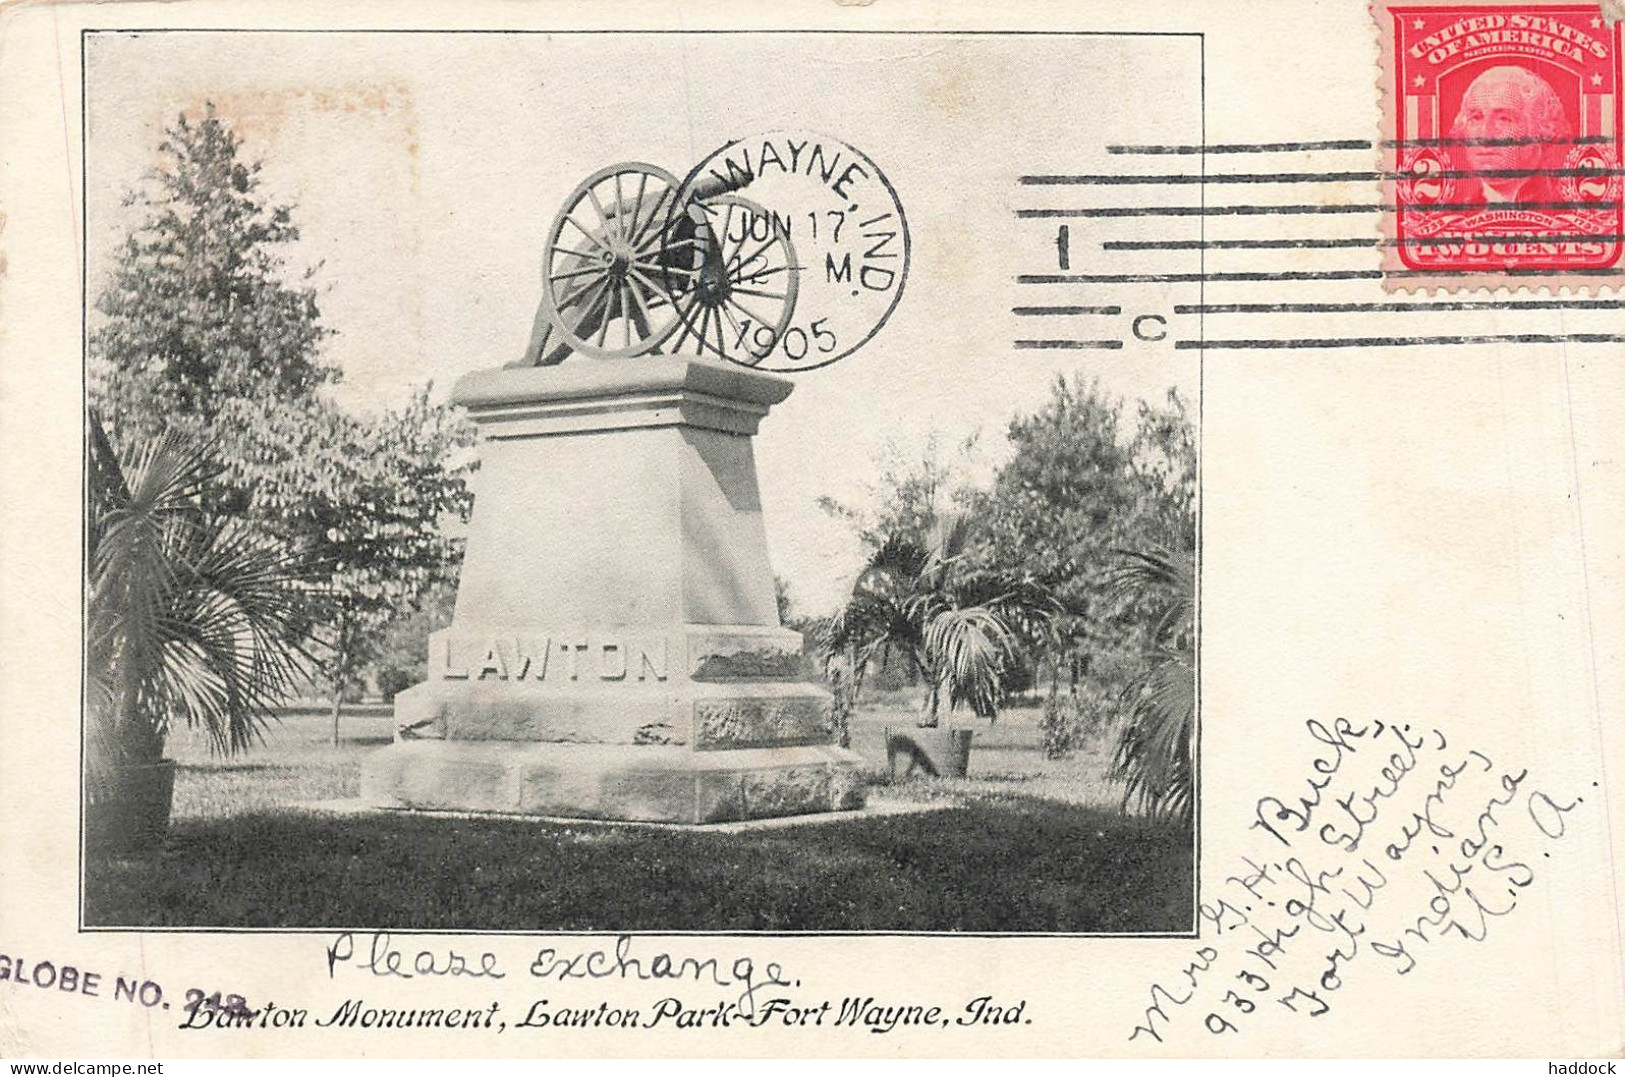 UNITED STATES
OF AMERICA
SERIES 1902
2 2
WASHINGTON
TWO CENTS
WAYNE, IND.
JUN 17
12 - M
1905
1
C
LAWTON
Mrs G. H. Buck,
933 High Street,
Fort Wayne,
Indiana
U. S. A.
Please exchange.
GLOBE NO. 248
Lawton Monument, Lawton Park - Fort Wayne, Ind.
www.delcampe.net
haddock